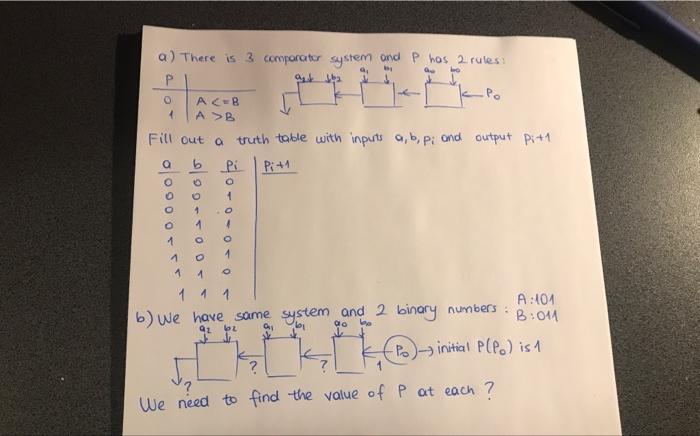 a) There is 3 comparator system and P has 2 rules:
P
0 A <= B
1 A > B
a2 b2 a1 b1 a0 b0
P0
Fill out a truth table with inputs a, b, pi and output pi+1
a b Pi Pi+1
0 0 0
0 0 1
0 1 0
0 1 1
1 0 0
1 0 1
1 1 0
1 1 1
b) We have same system and 2 binary numbers : A:101
B:011
a2 b2 a1 b1 a0 b0
P0 → initial P(P0) is 1
? ? ? 1
We need to find the value of P at each ?